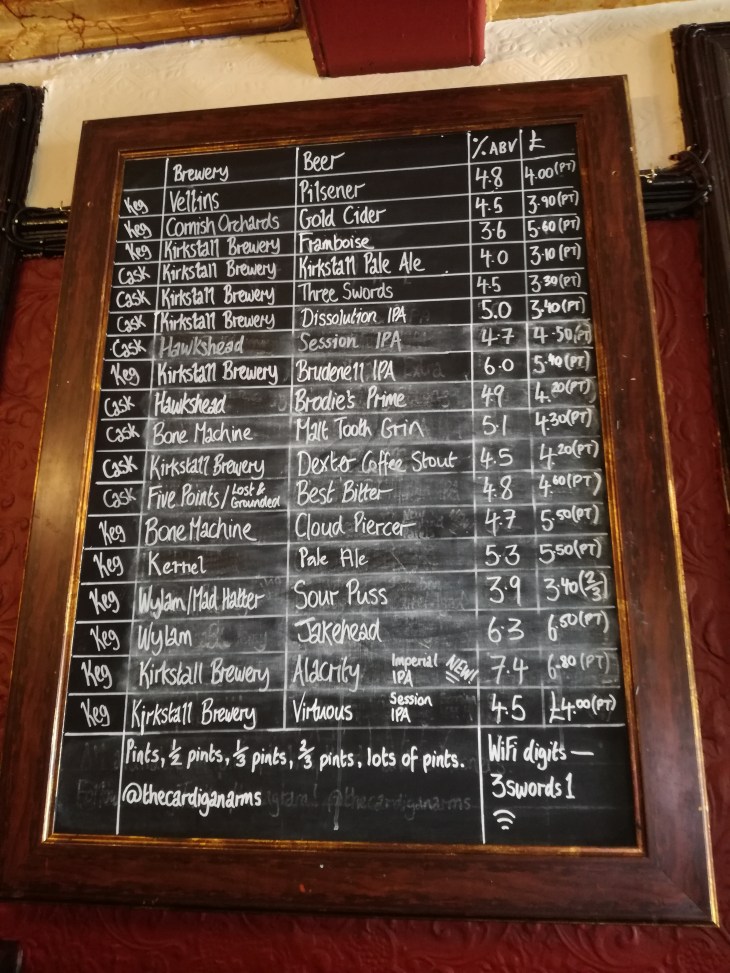 Brewery Beer % ABV £
Keg Veltins Pilsener 4.8 4.00 (PT)
Keg Cornish Orchards Gold Cider 4.5 3.90 (PT)
Keg Kirkstall Brewery Framboise 3.6 5.60 (PT)
Cask Kirkstall Brewery Kirkstall Pale Ale 4.0 3.10 (PT)
Cask Kirkstall Brewery Three Swords 4.5 3.30 (PT)
Cask Kirkstall Brewery Dissolution IPA 5.0 3.40 (PT)
Cask Hawkshead Session IPA 4.7 4.50 (PT)
Keg Kirkstall Brewery Brudenell IPA 6.0 (PT)
Cask Hawkshead Brodie's Prime 4.9 4.20 (PT)
Cask Bone Machine Malt Tooth Grin 5.1 4.30 (PT)
Cask Kirkstall Brewery Dexter Coffee Stout 4.5 4.20 (PT)
Cask Five Points / Lost & Grounded Best Bitter 4.8 4.60 (PT)
Keg Bone Machine Cloud Piercer 4.7 5.50 (PT)
Keg Kernel Pale Ale 5.3 5.50 (PT)
Keg Wylam/Mad Hatter Sour Puss 3.9 3.40 (2/3)
Keg Wylam Jakehead 6.3 6.50 (PT)
Keg Kirkstall Brewery Alacrity Imperial IPA NEW! 7.4 6.80 (PT)
Keg Kirkstall Brewery Virtuous Session IPA 4.5 £4.00 (PT)
Pints, 1/2 pints, 1/3 pints, 2/3 pints, lots of pints.
@thecardiganarms
WiFi digits —
3swords1